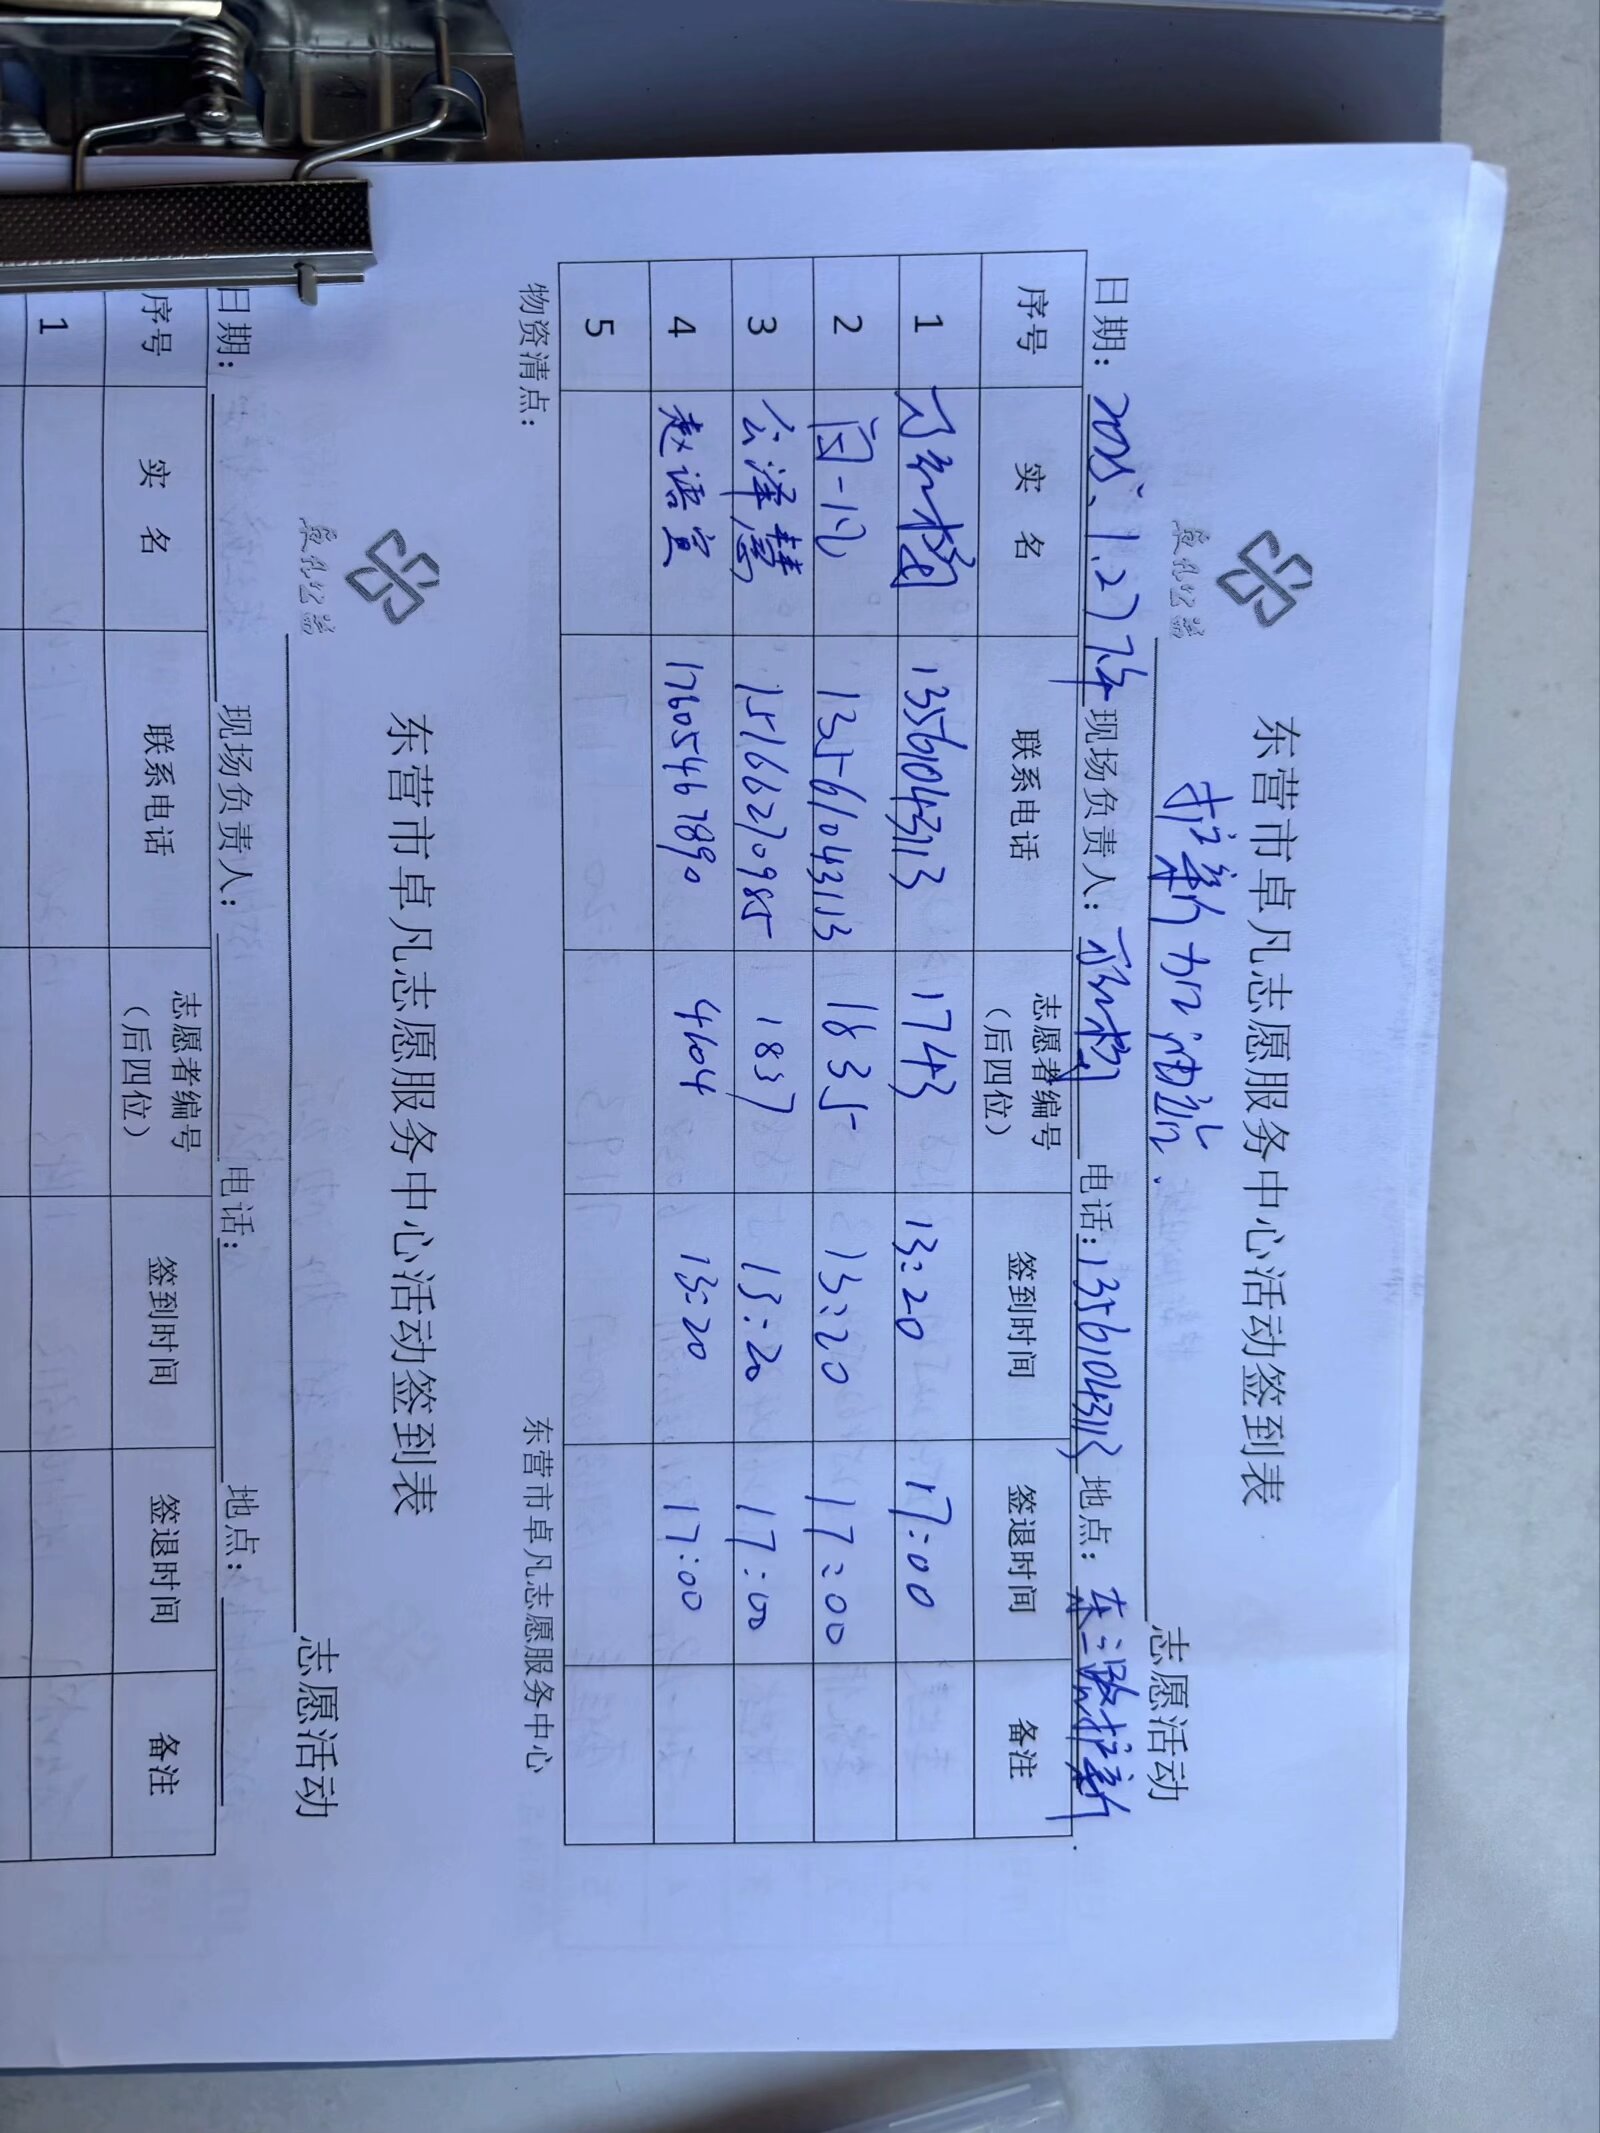 卓凡公益
东营市卓凡志愿服务中心活动签到表
护新加油站 志愿活动
日期：2025.1.27下午 现场负责人： 电话：13561043113 地点：东二路护新
序号 实 名 联系电话 志愿者编号（后四位） 签到时间 签退时间 备注
1 13561043113 1743 13:20 17:00
2 闫一凡 13561043113 1835 13:20 17:00
3 公泽慧 15166270985 1837 13:20 17:00
4 赵语宣 17605467890 4604 13:20 17:00
5
物资清点： 东营市卓凡志愿服务中心
卓凡公益
东营市卓凡志愿服务中心活动签到表
志愿活动
日期： 现场负责人： 电话： 地点：
序号 实 名 联系电话 志愿者编号（后四位） 签到时间 签退时间 备注
1